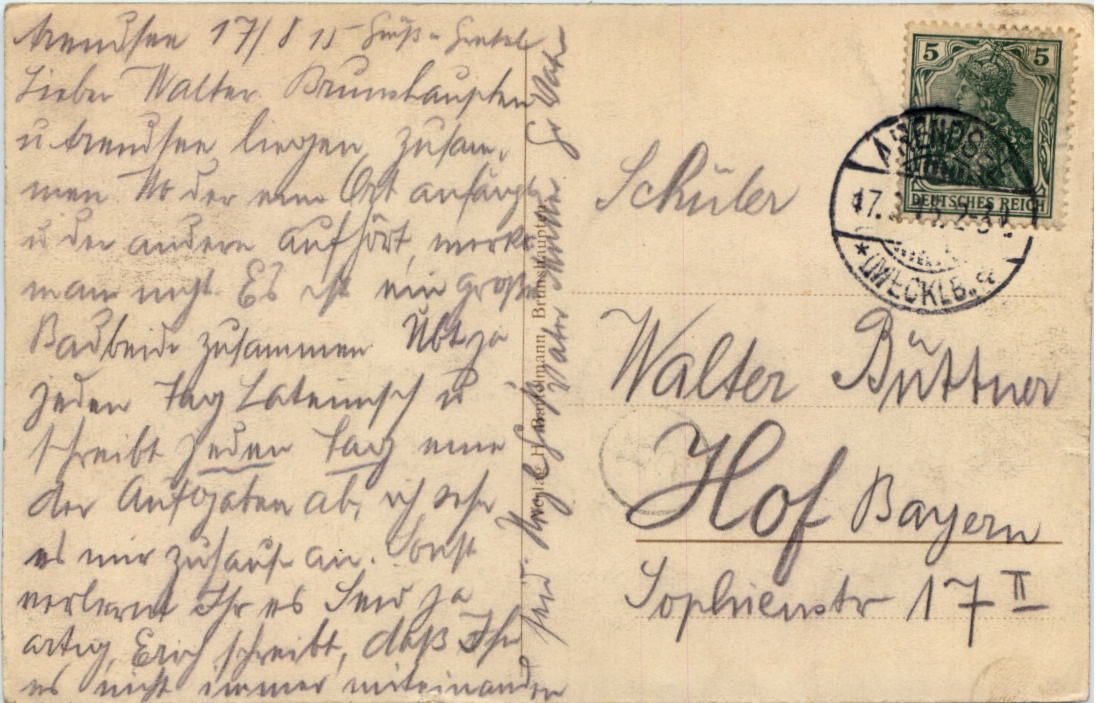 Arendsee 17/8 15 Gruß v. Gretel
Lieber Walter Brunshaupten
u Arendsee liegen zusam-
men Wo der eine Ort anfängt
u der andere aufhört, merkt
man nicht. Es ist ein großes
Bad beide zusammen Übt ja
jeden Tag Lateinisch u
schreibt jeden Tag eine
der Aufgaben ab, ich sehe
es mir zuhause an. Sonst
verlernt Ihr es Seid ja
artig, Erich schreibt, daß Ihr
es nicht immer miteinander
seid. Vater Mutter
Gr Vater
Verlag H. Brunshaupten
Schüler
Walter Büttner
Hof Bayern
Sophienstr 17 II
5 5
DEUTSCHES REICH
ARENDSEE
17. 2-3
* (MECKLB.)